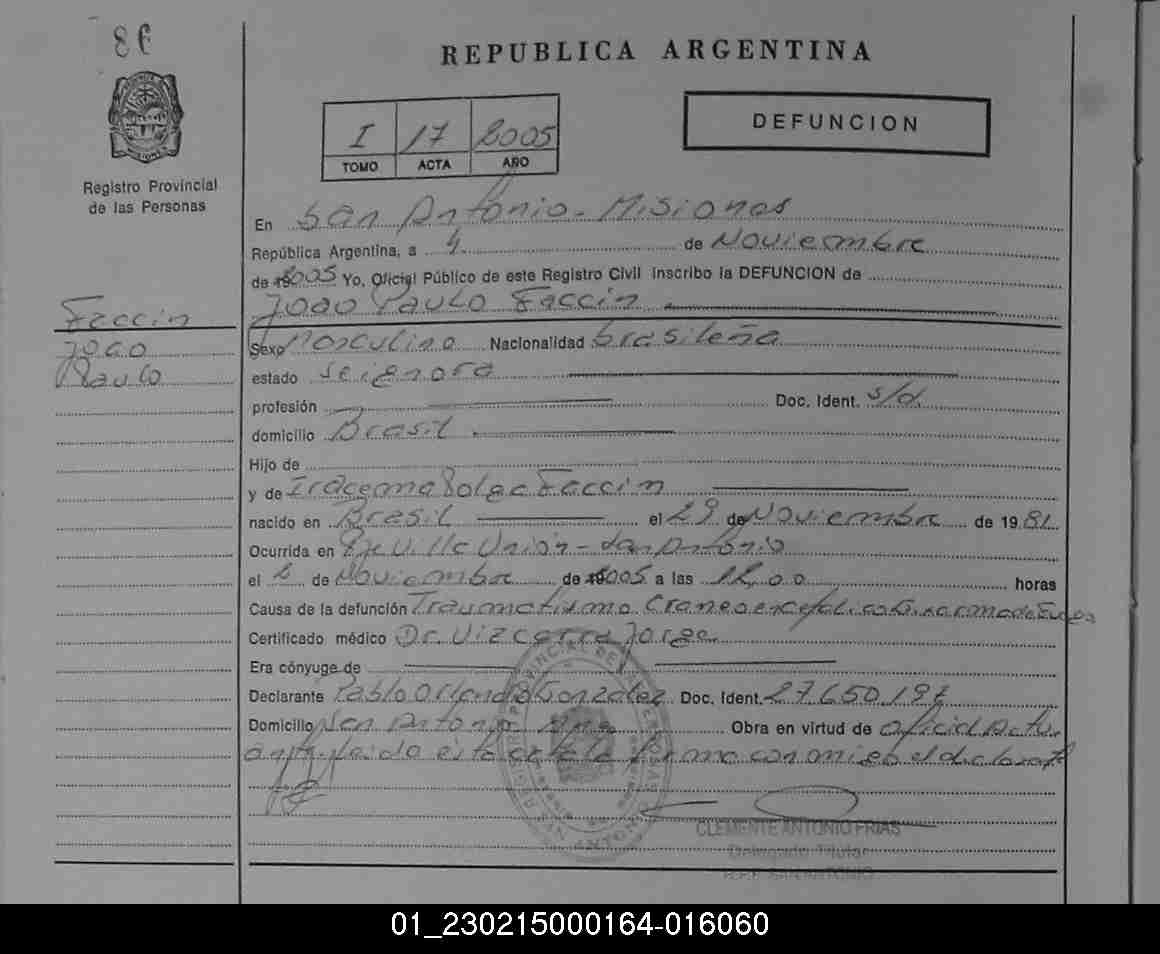 86
REPUBLICA ARGENTINA
I 17 2005
TOMO ACTA AÑO
DEFUNCION
Registro Provincial
de las Personas
En San Antonio - Misiones
República Argentina, a 4 de Noviembre
de 2005 Yo, Oficial Público de este Registro Civil inscribo la DEFUNCION de
Joao Paulo Faccin
Faccin
Joao
Paulo
Sexo Masculino Nacionalidad brasileña
estado se ignora
profesión Doc. Ident. s/d.
domicilio Brasil
Hijo de
y de Iracema Faccin
nacido en Brasil el 29 de Noviembre de 1981
Ocurrida en Villa Unión - San Antonio
el 2 de Noviembre de 2005 a las 12,00 horas
Causa de la defunción Traumatismo Craneoencefalico arma de fuego
Certificado médico Dr. Vizcarra Jorge
Era cónyuge de
Declarante Pablo Orlando Gonzalez Doc. Ident. 27.650.197
Domicilio San Antonio Mnes Obra en virtud de oficial Actu
ante leido esta acta la firma conmigo el declarante
CLEMENTE ANTONIO FRIAS
Delegado Titular
R.P.P. SAN ANTONIO
01_230215000164-016060